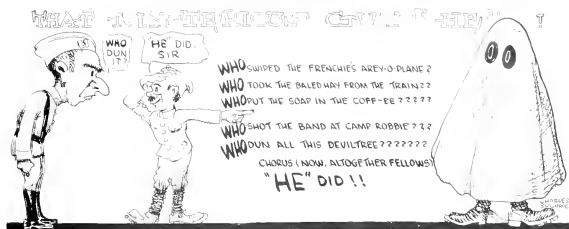 THAT
WHO
DUN
I??
"HE" DID.
SIR
WHO SWIPED THE FRENCHIE'S AREY-O-PLANE?
WHO TOOK THE BALED HAY FROM THE TRAIN??
WHO PUT THE SOAP IN THE COFF-EE?????
WHO SHOT THE BAND AT CAMP ROBBIE???
WHO DUN ALL THIS DEVILTREE???????
CHORUS (NOW, ALTOGETHER FELLOWS)
"HE" DID!!